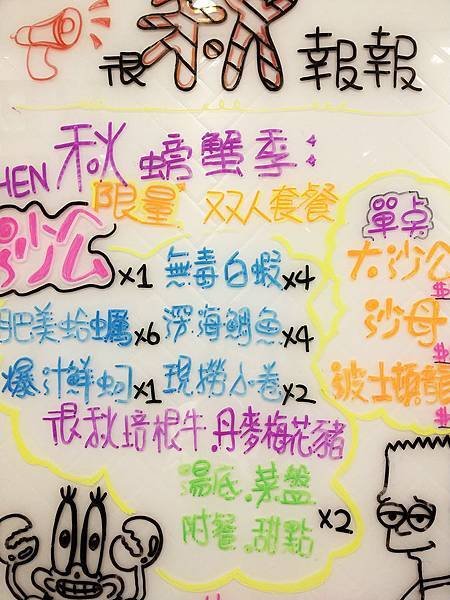 很秋報報
HEN 秋 螃蟹季:
限量 双人套餐
沙公 x1 無毒白蝦 x4
肥美蛤蠣 x6 深海鯛魚 x4
爆汁鮮蚵 x1 現撈小卷 x2
很秋培根牛.丹麥梅花豬
湯底.菜盤
附餐.甜點 x2
單点
大沙公
$
沙母
$
波士頓龍
$